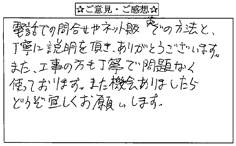 ☆ご意見・ご感想☆
電話での問合せやネット販などの方法と、
丁寧に説明を頂き、ありがとうございます。
また、工事の方も丁寧で問題なく
使っております。また機会ありましたら
どうぞ宜しくお願いします。